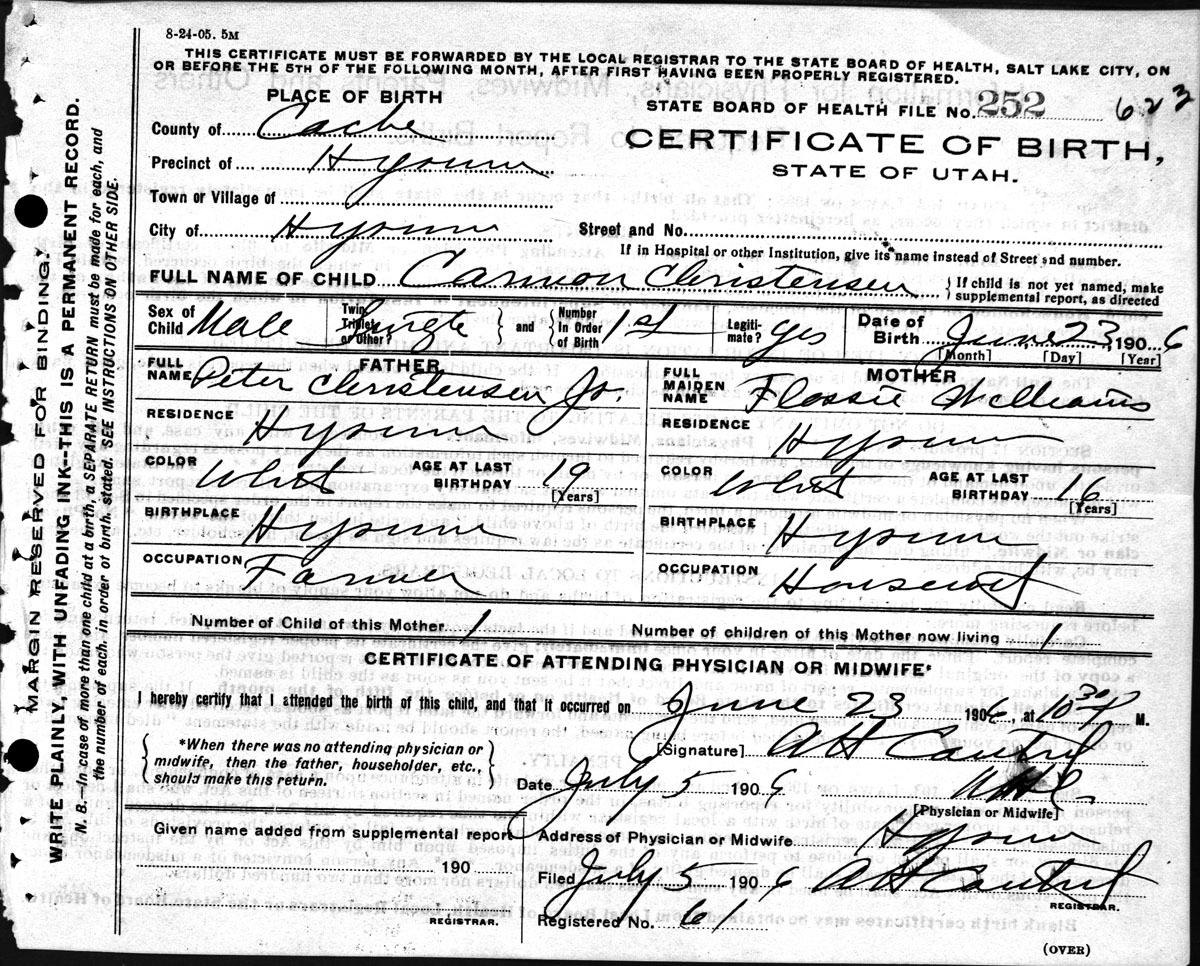 8-24-05. 5M
THIS CERTIFICATE MUST BE FORWARDED BY THE LOCAL REGISTRAR TO THE STATE BOARD OF HEALTH, SALT LAKE CITY, ON
OR BEFORE THE 5TH OF THE FOLLOWING MONTH, AFTER FIRST HAVING BEEN PROPERLY REGISTERED.
PLACE OF BIRTH
STATE BOARD OF HEALTH FILE No. 252 623
County of Cache
CERTIFICATE OF BIRTH,
STATE OF UTAH.
Precinct of Hyrum
Town or Village of
City of Hyrum Street and No.
If in Hospital or other Institution, give its name instead of Street and number.
FULL NAME OF CHILD Cannon Christensen { If child is not yet named, make
supplemental report, as directed
Sex of Child Male Twin, Triplet, or Other? Single and Number in Order of Birth 1st Legiti-mate? yes Date of Birth June 23 1906
[Month] [Day] [Year]
FATHER
FULL NAME Peter Christensen Jr.
MOTHER
FULL MAIDEN NAME Flossie Williams
RESIDENCE Hyrum
RESIDENCE Hyrum
COLOR White AGE AT LAST BIRTHDAY 19 [Years]
COLOR White AGE AT LAST BIRTHDAY 16 [Years]
BIRTHPLACE Hyrum
BIRTHPLACE Hyrum
OCCUPATION Farmer
OCCUPATION Housewf
Number of Child of this Mother 1 Number of children of this Mother now living 1
CERTIFICATE OF ATTENDING PHYSICIAN OR MIDWIFE*
I hereby certify that I attended the birth of this child, and that it occurred on June 23 1906, at 10 30 P M.
{ *When there was no attending physician or
midwife, then the father, householder, etc.,
should make this return. }
[Signature] A H
Date July 5 1906
[Physician or Midwife]
Given name added from supplemental report
190
REGISTRAR.
Address of Physician or Midwife Hyrum
Filed July 5 1906 A H
REGISTRAR.
Registered No. 61
(OVER)
MARGIN RESERVED FOR BINDING.
WRITE PLAINLY, WITH UNFADING INK--THIS IS A PERMANENT RECORD.
N. B.--In case of more than one child at a birth, a SEPARATE RETURN must be made for each, and
the number of each, in order of birth, stated. SEE INSTRUCTIONS ON OTHER SIDE.